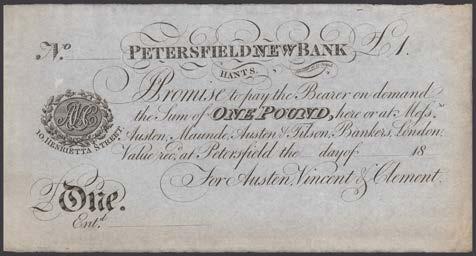 No. PETERSFIELD NEW BANK £1.
HANTS.
Promise to pay the Bearer on demand
the Sum of ONE POUND, here or at Messrs.
Austen, Maunde, Austen & Tilson, Bankers, London.
10 HENRIETTA STREET.
Value recd. at Petersfield the day of 18
For Austen, Vincent & Clement.
£ One.
Entd.